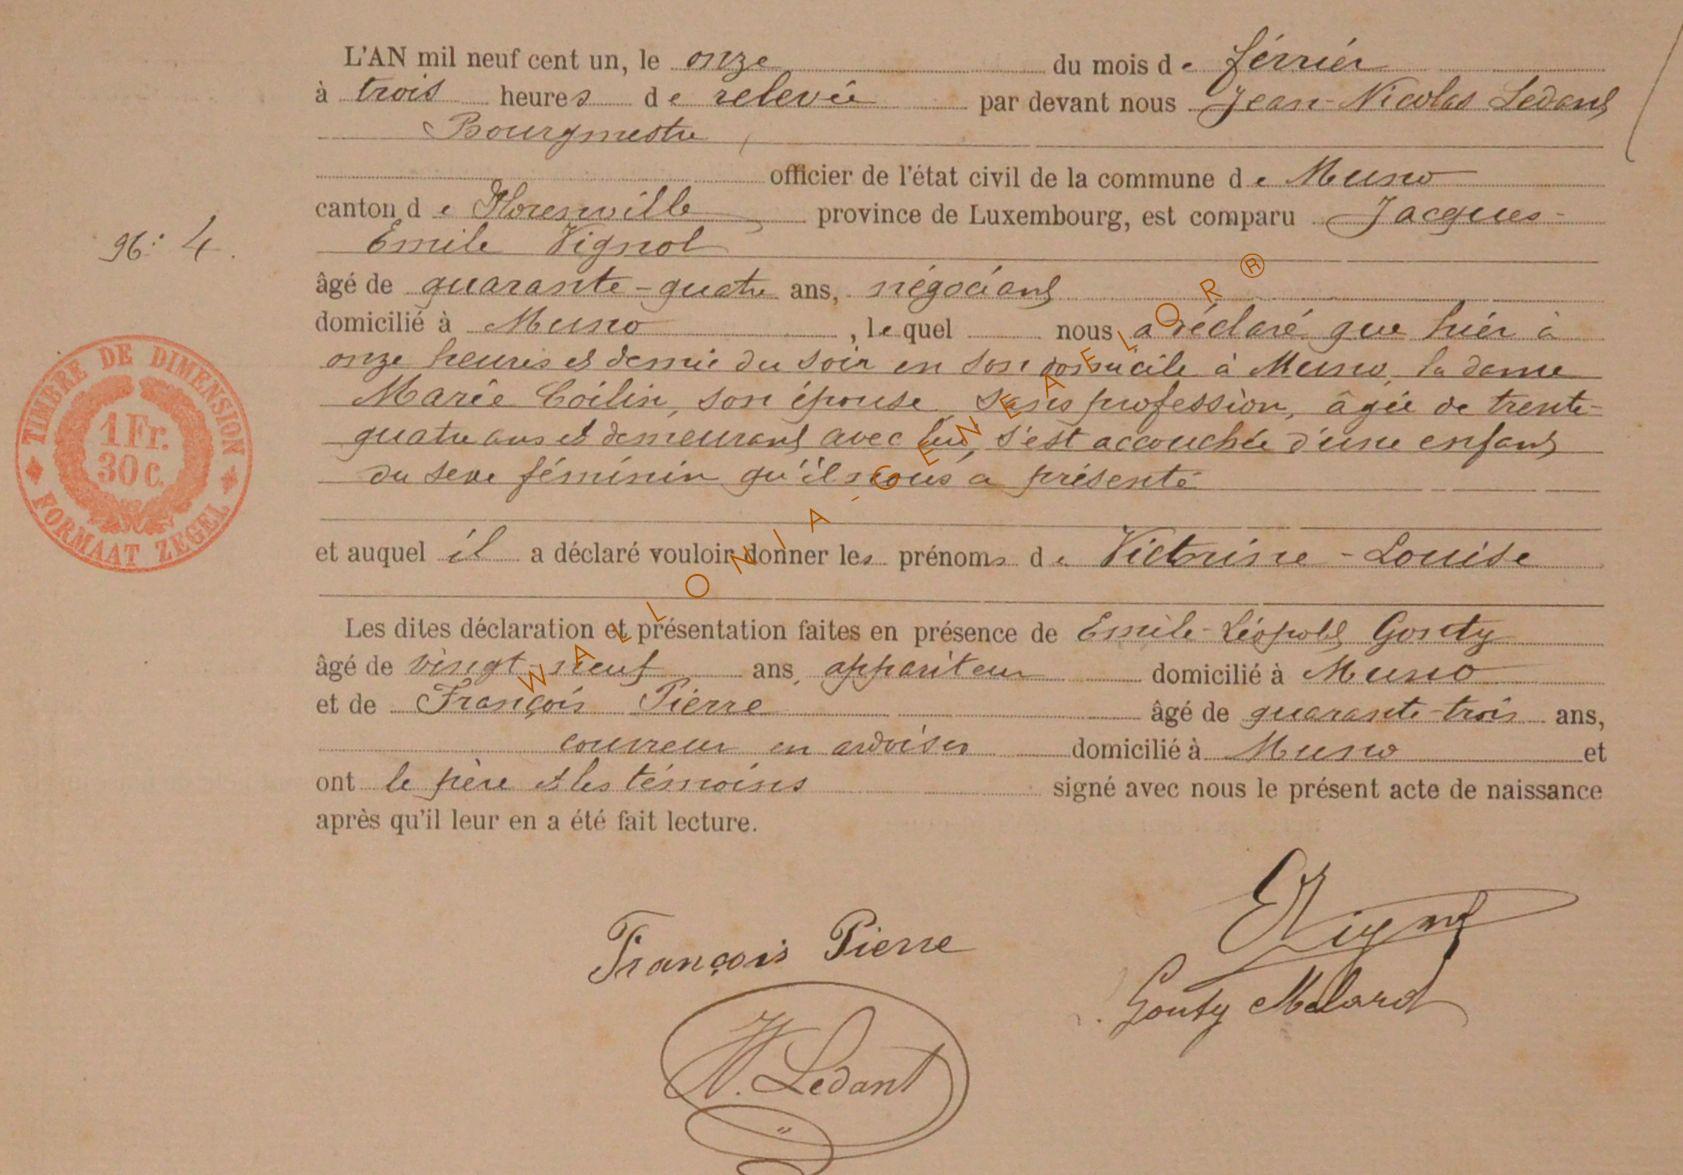 L'AN mil neuf cent un, le onze du mois de février
à trois heures de relevée par devant nous Jean-Nicolas Ledant
Bourgmestre,
officier de l'état civil de la commune de Muno
canton de Florenville, province de Luxembourg, est comparu Jacques-
Emile Vignol
âgé de quarante-quatre ans, négociant
domicilié à Muno, lequel nous a déclaré que hier à
onze heures et demie du soir en son domicile à Muno, la dame
Marie Coilin, son épouse, sans profession, âgée de trente-
quatre ans et demeurant avec lui, s'est accouchée d'une enfant
du sexe féminin qu'il nous a présenté
et auquel il a déclaré vouloir donner les prénoms de Victorine-Louise
Les dites déclaration et présentation faites en présence de Emile-Léopold Gouty
âgé de vingt-neuf ans, appariteur domicilié à Muno
et de François Pierre âgé de quarante-trois ans,
couvreur en ardoises domicilié à Muno et
ont le père et les témoins signé avec nous le présent acte de naissance
après qu'il leur en a été fait lecture.
4.
TIMBRE DE DIMENSION
1 Fr.
30 c.
FORMAAT ZEGEL
WALLONIA-GENEAFLOR®
François Pierre
E Vignol
Gouty Melard
N. Ledant